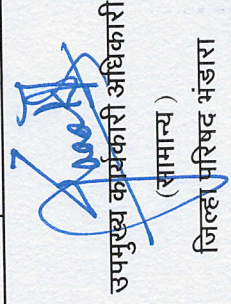 उपमुख्य कार्यकारी अधिकारी
(सामान्य)
जिल्हा परिषद भंडारा